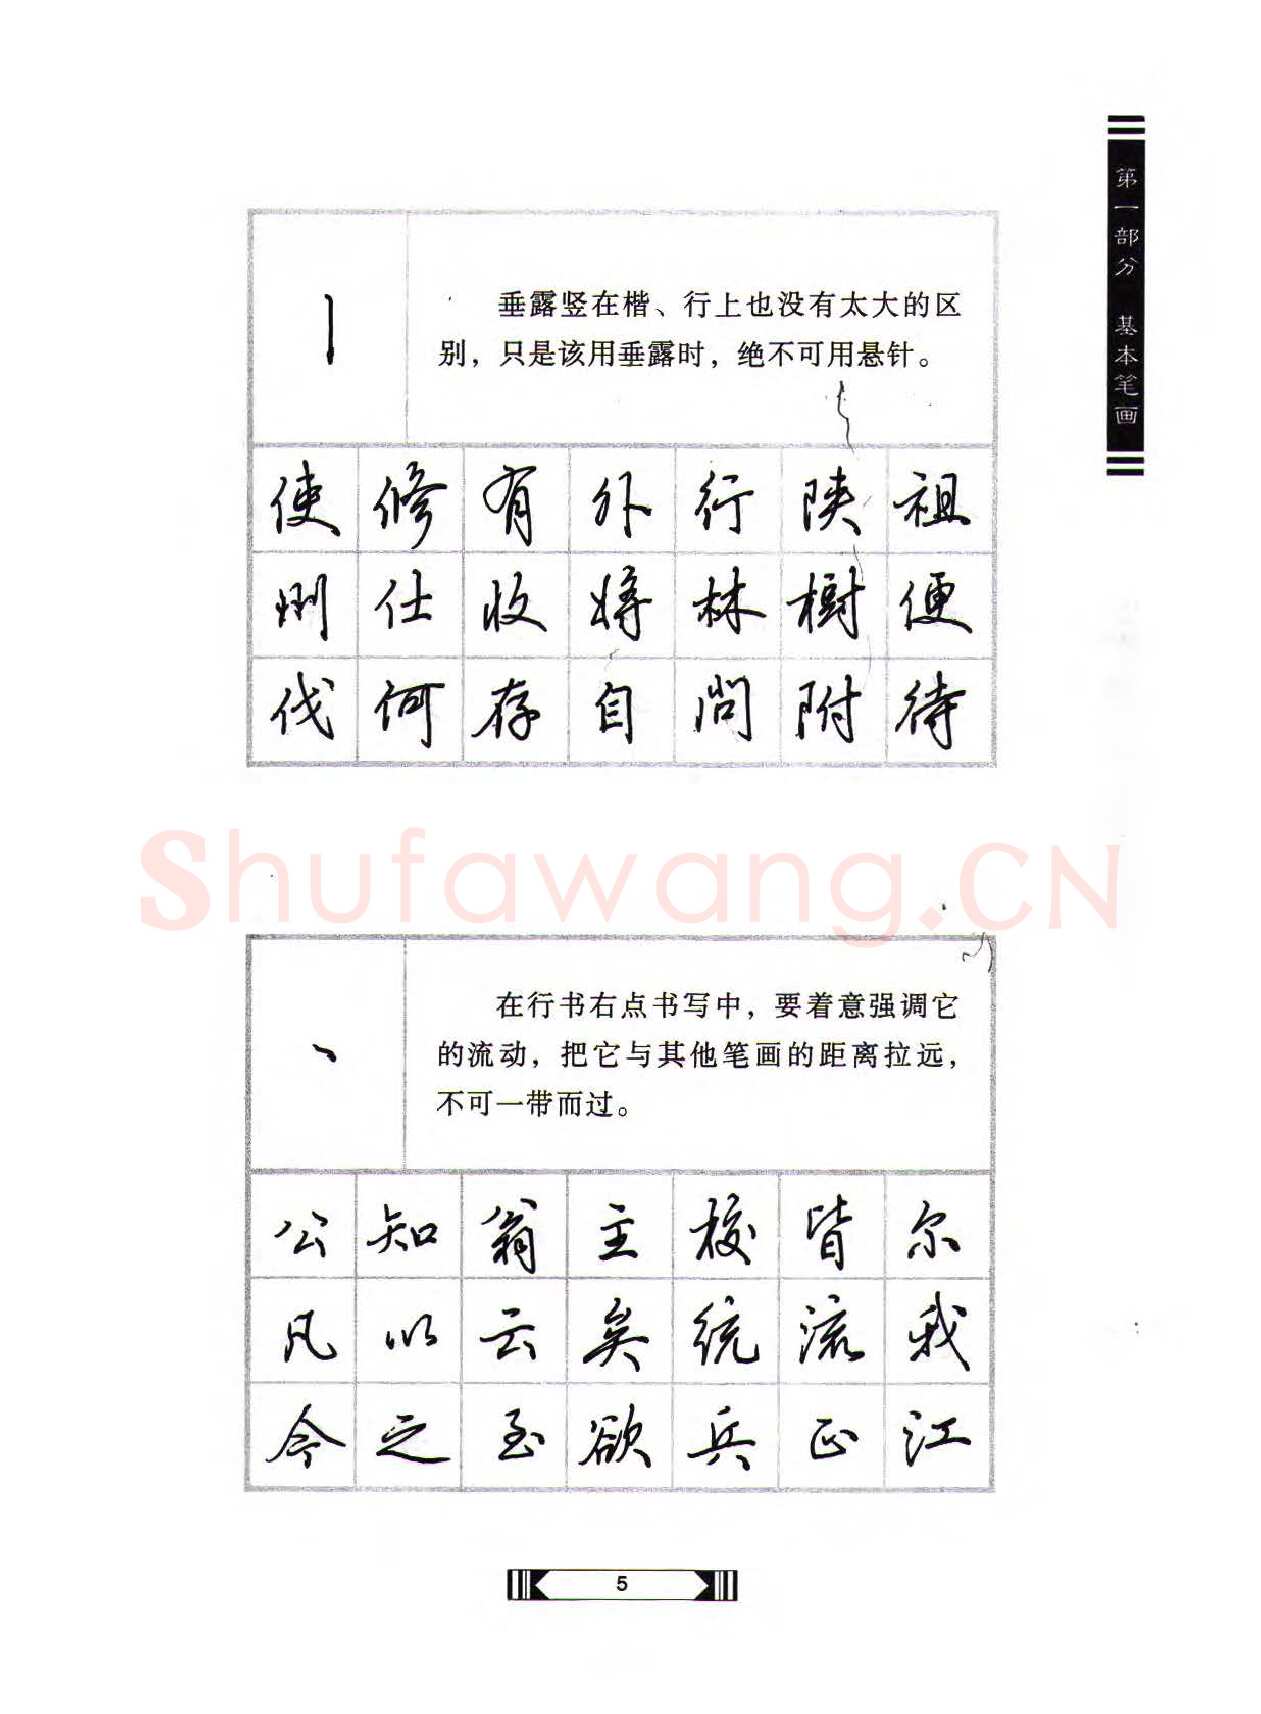 第一部分 基本笔画
垂露竖在楷、行上也没有太大的区
别，只是该用垂露时，绝不可用悬针。
使 修 有 外 行 陕 祖
仕 收 将 林 樹 便
伐 何 存 自 問 附 待
Shufawang.CN
在行书右点书写中，要着意强调它
的流动，把它与其他笔画的距离拉远，
不可一带而过。
公 知 翁 主 校 皆 尔
凡 以 云 矣 统 流 我
今 之 至 欲 兵 正 江
5